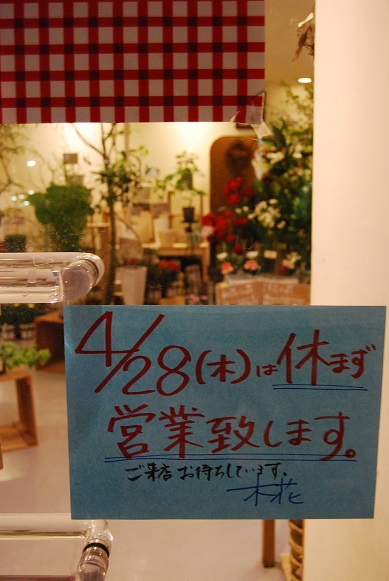 4/28(木)は休まず
営業致します。
ご来店お待ちしています、
木花